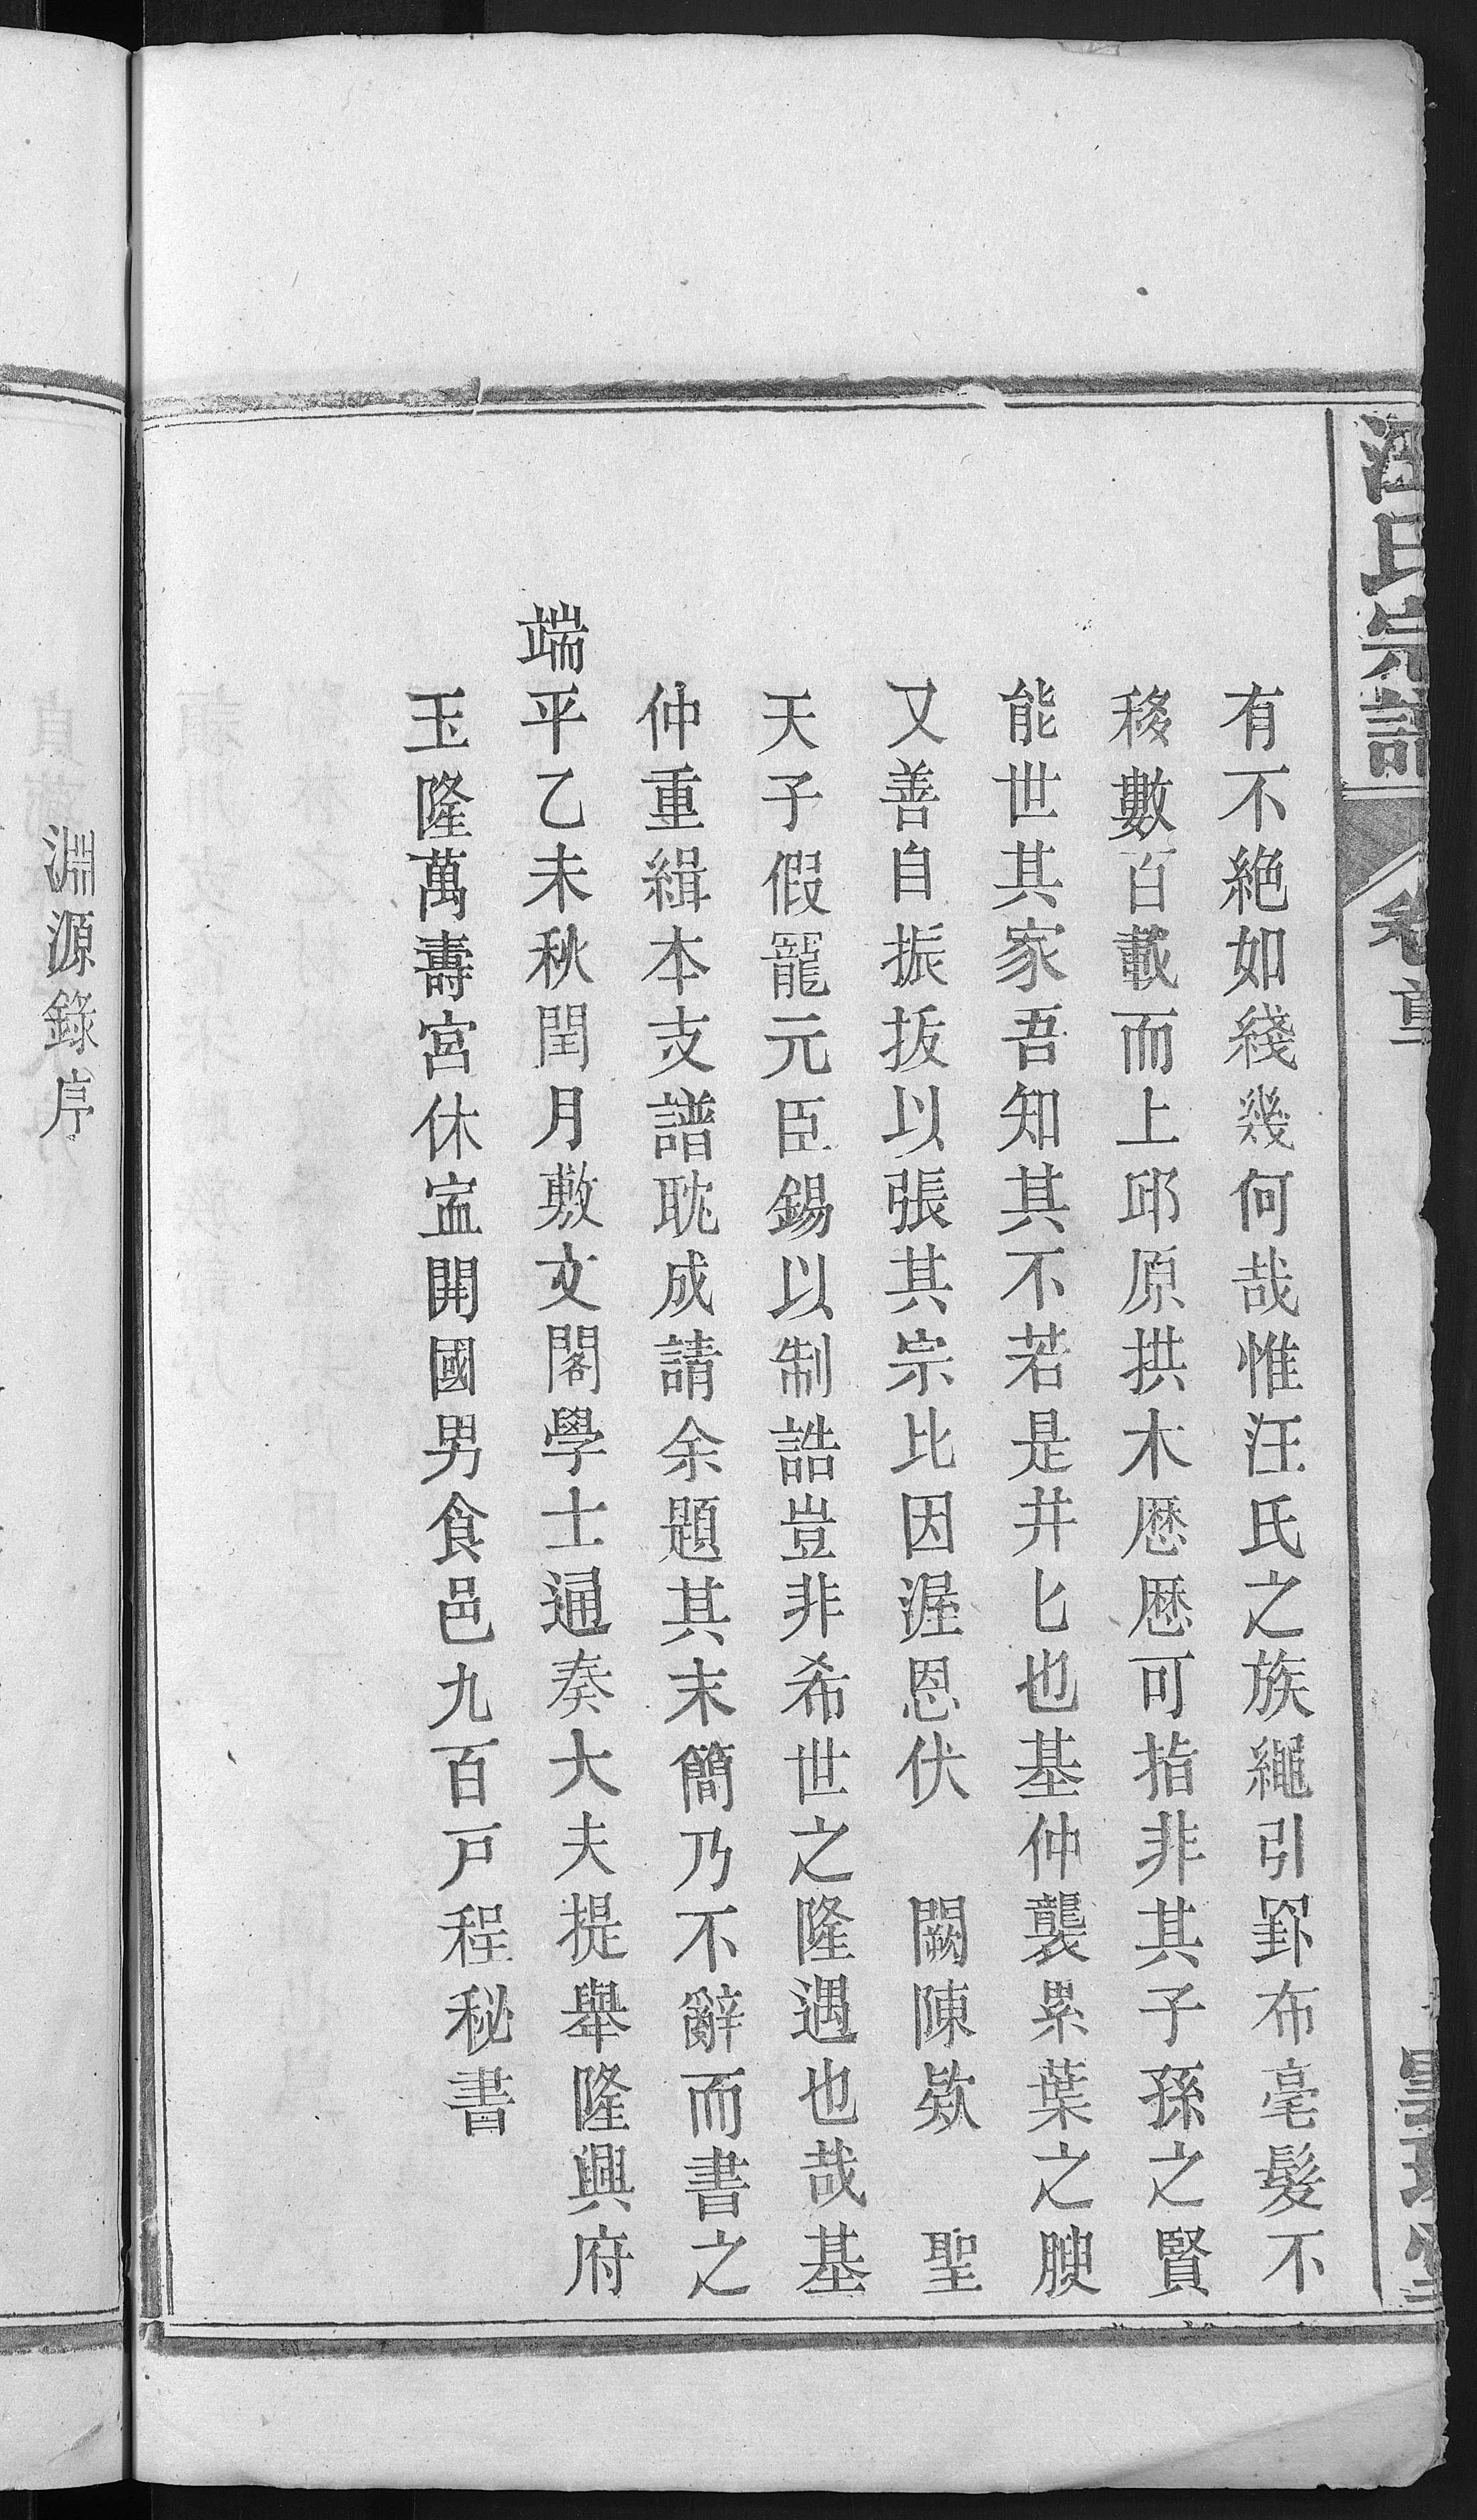 汪氏宗譜
卷首
有不絶如綫幾何哉惟汪氏之族繩引罫布毫髮不
移數百載而上邱原拱木厯厯可指非其子孫之賢
能世其家吾知其不若是井匕也基仲襲累葉之腴
又善自振㧞以張其宗比因渥恩伏　闕陳欵　聖
天子假寵元臣錫以制誥豈非希世之隆遇也哉基
仲重緝本支譜眈成請余題其末簡乃不辭而書之
端平乙未秋閏月敷文閣學士通奏大夫提舉隆興府
玉隆萬壽宮休寍開國男食邑九百戸程秘書
淵源錄序